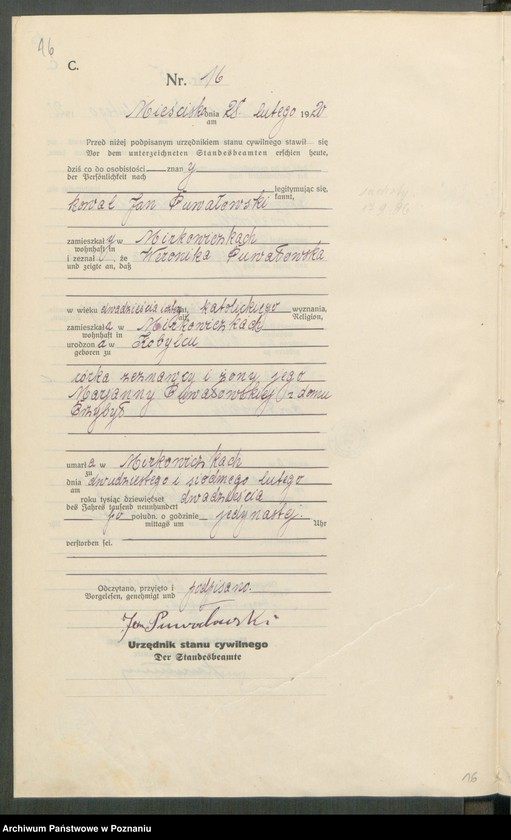 16
C.
Nr. 16
Mieścisko dnia 28 lutego 1920
am
Przed niżej podpisanym urzędnikiem stanu cywilnego stawił się
Vor dem unterzeichneten Standesbeamten erschien heute,
dziś co do osobistości znany
der Persönlichkeit nach
legitymując się,
kowal Jan Suwałowski kannt,
zamieszkały w Mirkowiczkach
wohnhaft in
i zeznał, że Weronika Suwałowska
und zeigte an, daß
w wieku dwadzieścia lat, katolickiego wyznania,
Religion,
zamieszkała w Mirkowiczkach
wohnhaft in
urodzona w Kobylcu
geboren zu
córka zeznawcy i żony jego
Marjanny Suwałowskiej z domu
umarła w Mirkowiczkach
zu
dnia dwudziestego i siódmego lutego
am
roku tysiąc dziewięćset dwadzieścia
des Jahres tausend neunhundert
po połudn. o godzinie jedynastej.
mittags um Uhr
verstorben sei.
Odczytano, przyjęto i podpisano.
Vorgelesen, genehmigt und
Jan Suwałowski
Urzędnik stanu cywilnego
Der Standesbeamte
16
Archiwum Państwowe w Poznaniu